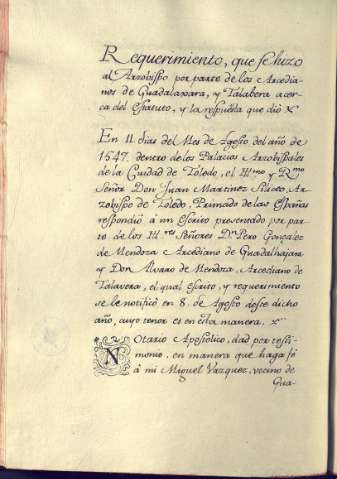 Requerimiento, que se hizo
al Arzobispo por parte de los Arcedia-
nos de Guadalaxara, y Talabera acer-
ca del Estatuto, y la respuesta que dió
En 11 dias del Mes de Agosto del año de
1547. dentro de los Palacios Arzobispales
de la Ciudad de Toledo, el Ill.mo y R.mo
Señor Don Juan Martinez Siliceo, Ar-
zobispo de Toledo, Primado de las Españas
respondió á un Escrito presentado por par-
te de los Ill.res Señores D.n Pero Gonzalez
de Mendoza Arcediano de Guadalhajara
y Don Alvaro de Mendoza, Arcediano de
Talavera, el qual escrito, y requerimiento
se le notificó en 8. de Agosto deste dicho
año, cuyo tenor es en esta manera.
Notario Apostolico, dad por testi-
monio, en manera que haga fé
á mi Miguel Vazquez, vecino de
Gua-